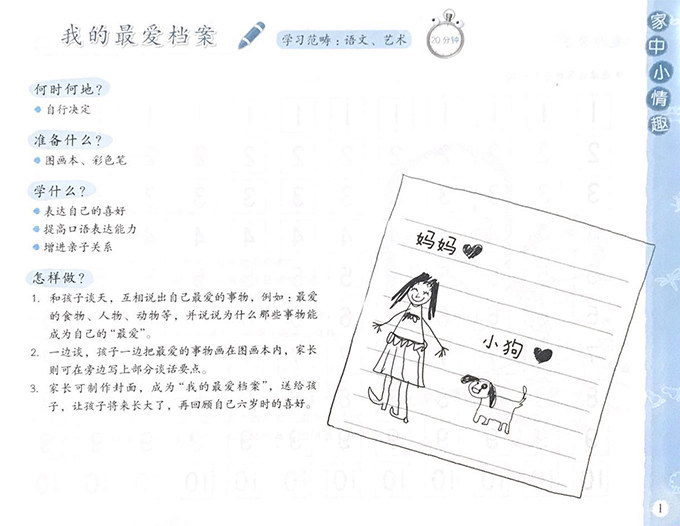 我的最爱档案
学习范畴：语文、艺术
20分钟
家中小情趣
何时何地？
自行决定
准备什么？
图画本、彩色笔
学什么？
表达自己的喜好
提高口语表达能力
增进亲子关系
怎样做？
1. 和孩子谈天，互相说出自己最爱的事物，例如：最爱
的食物、人物、动物等，并说说为什么那些事物能
成为自己的“最爱”。
2. 一边谈，孩子一边把最爱的事物画在图画本内，家长
则可在旁边写上部分谈话要点。
3. 家长可制作封面，成为“我的最爱档案”，送给孩
子，让孩子将来长大了，再回顾自己六岁时的喜好。
妈妈
小狗
1